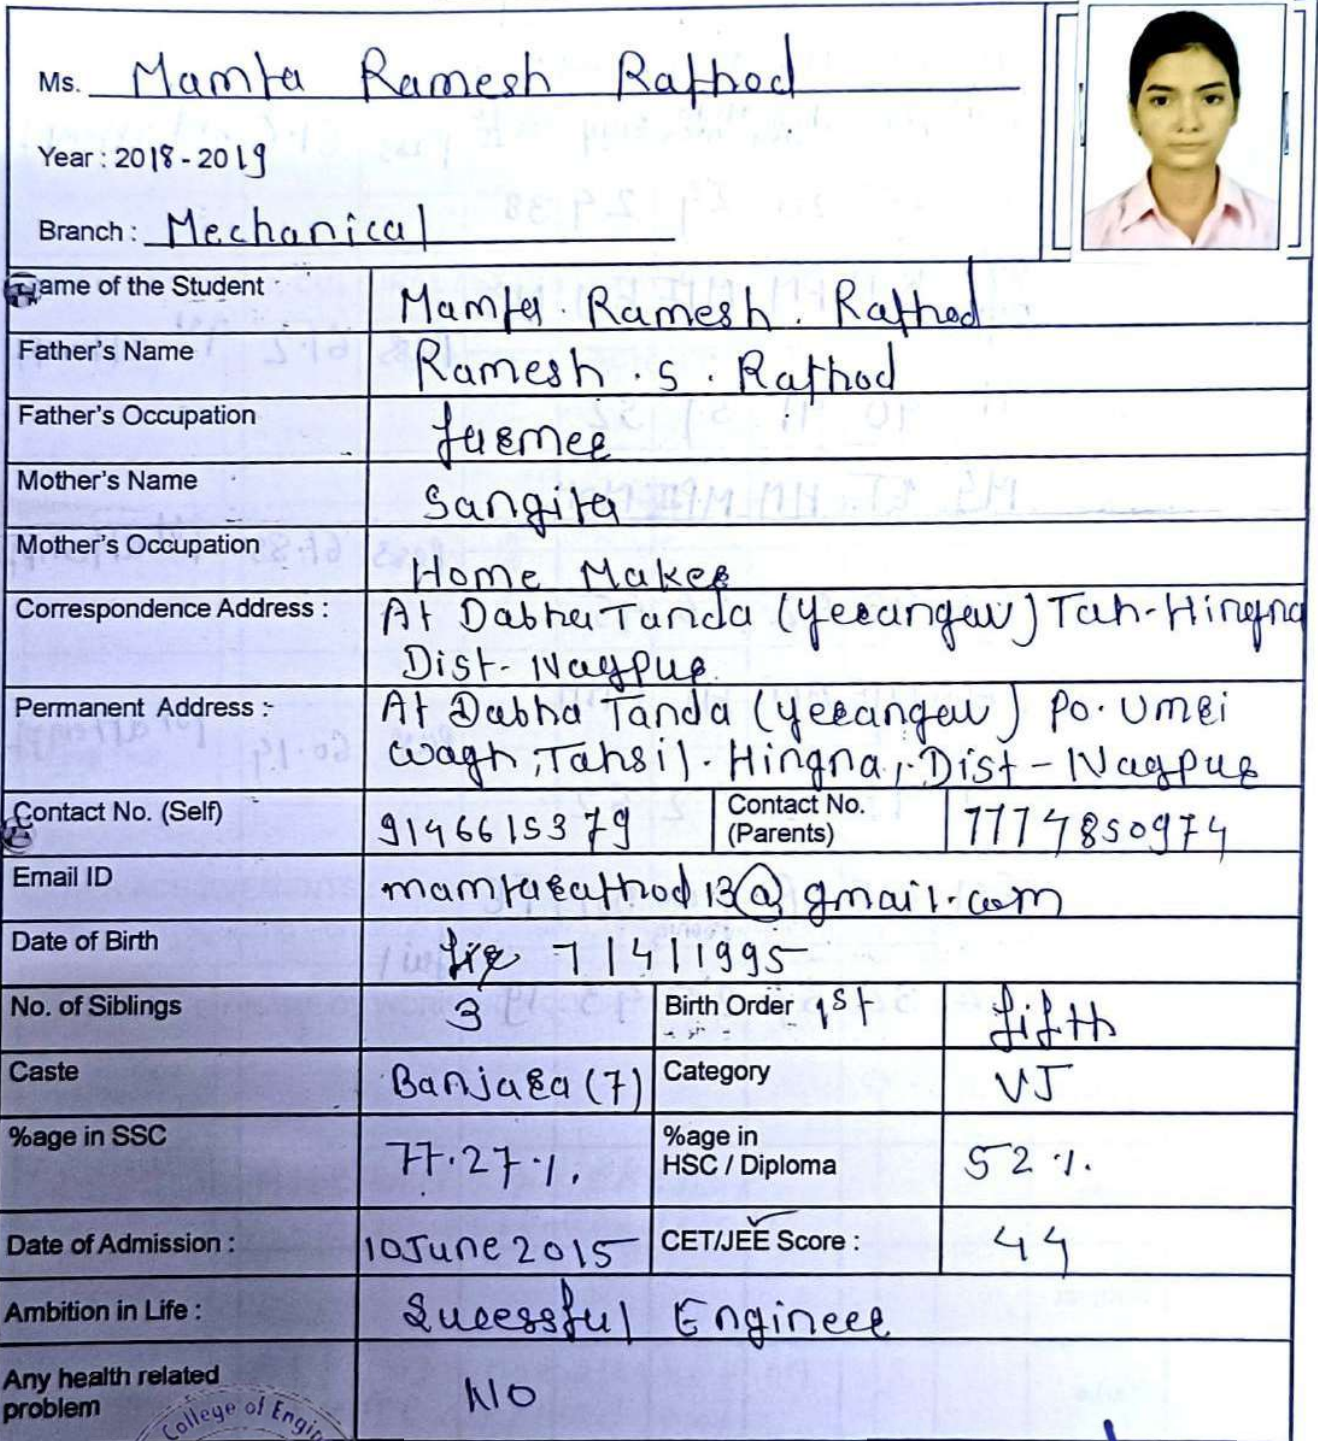 Ms. Mamta Ramesh Rathod
Year : 2018 - 2019
Branch : Mechanical
Name of the Student Mamta . Ramesh . Rathod
Father's Name Ramesh . S . Rathod
Father's Occupation farmer
Mother's Name Sangita
Mother's Occupation Home Maker
Correspondence Address : At Dabha Tanda (yerangaw) Tah-Hingna
Dist- Nagpur.
Permanent Address :- At Dabha Tanda (yerangaw) Po. Umri
wagh, Tahsil. Hingna, Dist - Nagpur
Contact No. (Self) 9146615379 Contact No. (Parents) 7774850974
Email ID mamtarathod13@gmail.com
Date of Birth 7/4/1995
No. of Siblings 3 Birth Order 1st fifth
Caste Banjara (7) Category VJ
%age in SSC 77.27 %. %age in HSC / Diploma 52 %.
Date of Admission : 10 June 2015 CET/JEE Score : 44
Ambition in Life : Sucessful Engineer
Any health related problem NO
College of Engin